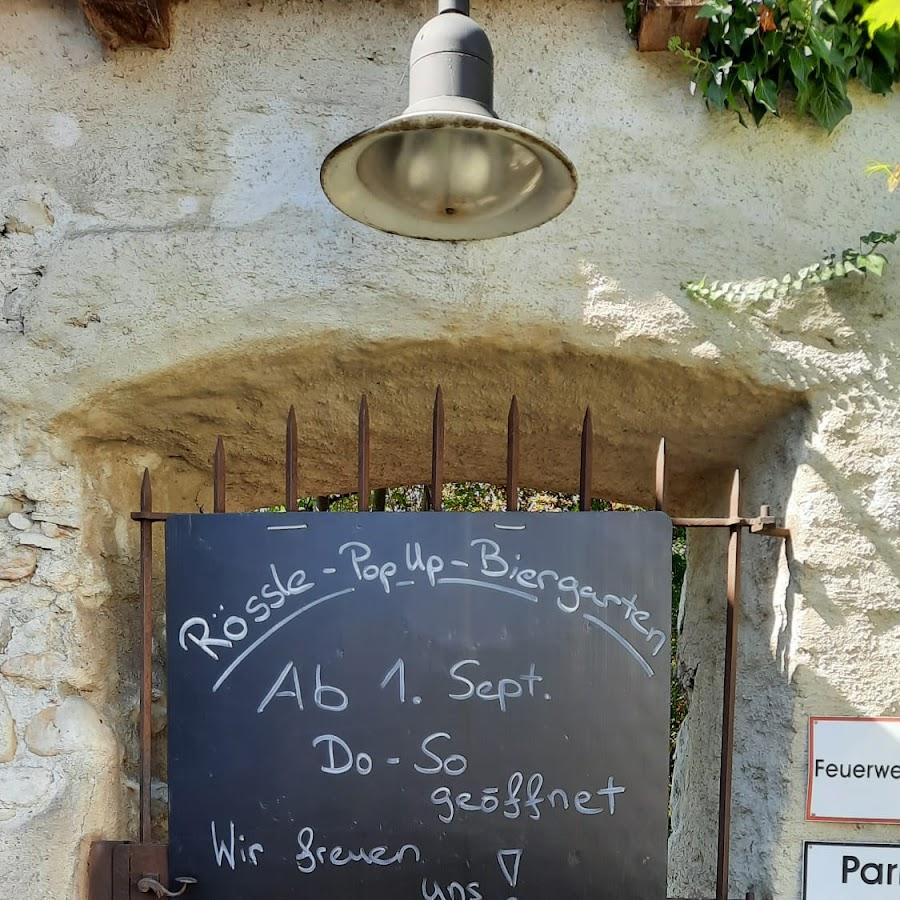 Rössle-PopUp-Biergarten
Ab 1. Sept.
Do-So
geöffnet
Wir freuen
uns!
Feuerwe
Par